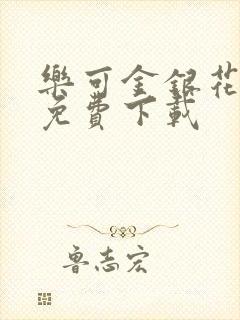 樂可金銀花
免費下載
魯志宏